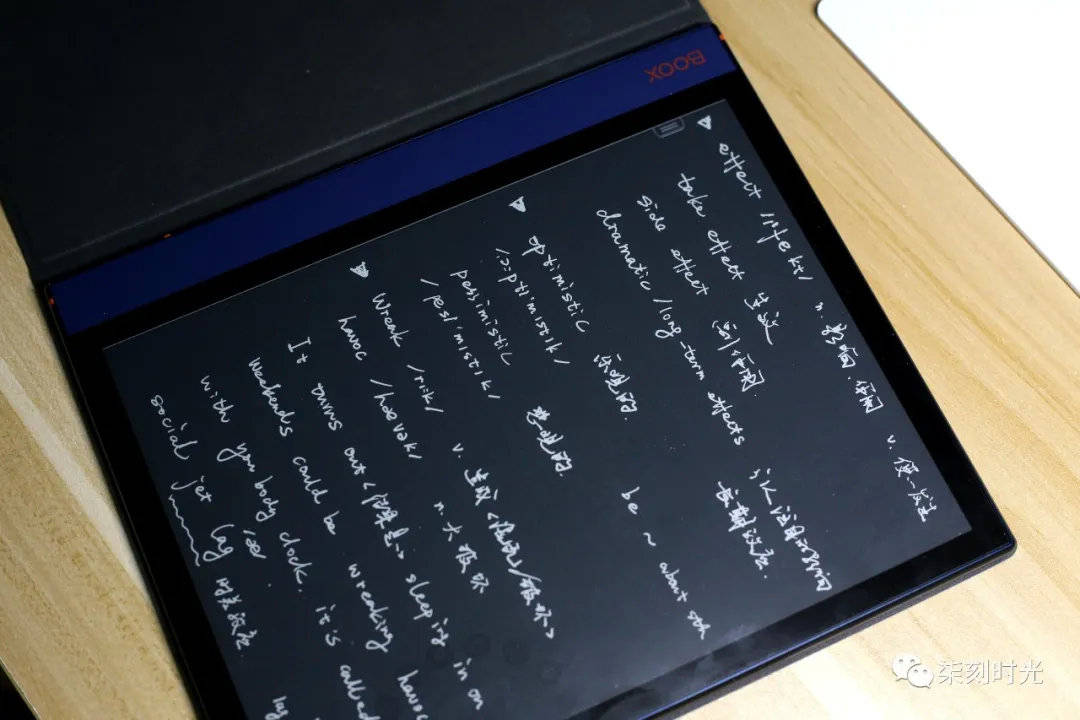 BOOX
effect /ɪˈfekt/ n. 影响.作用 v. 使…发生
take effect 生效
side effect 副作用
dramatic / long-term effects 长期效应.
optimistic 乐观的.
/ˌɒptɪˈmɪstɪk/ be ~ about sth
pessimistic 悲观的.
/ˌpesɪˈmɪstɪk/
wreak /riːk/ v. 造成<
havoc /ˈhævək/ n. 大破坏
It turns out sleeping in on
weekends could be wreaking havoc
with you body clock. it's called
social jet lag 时差效应
柒刻时光